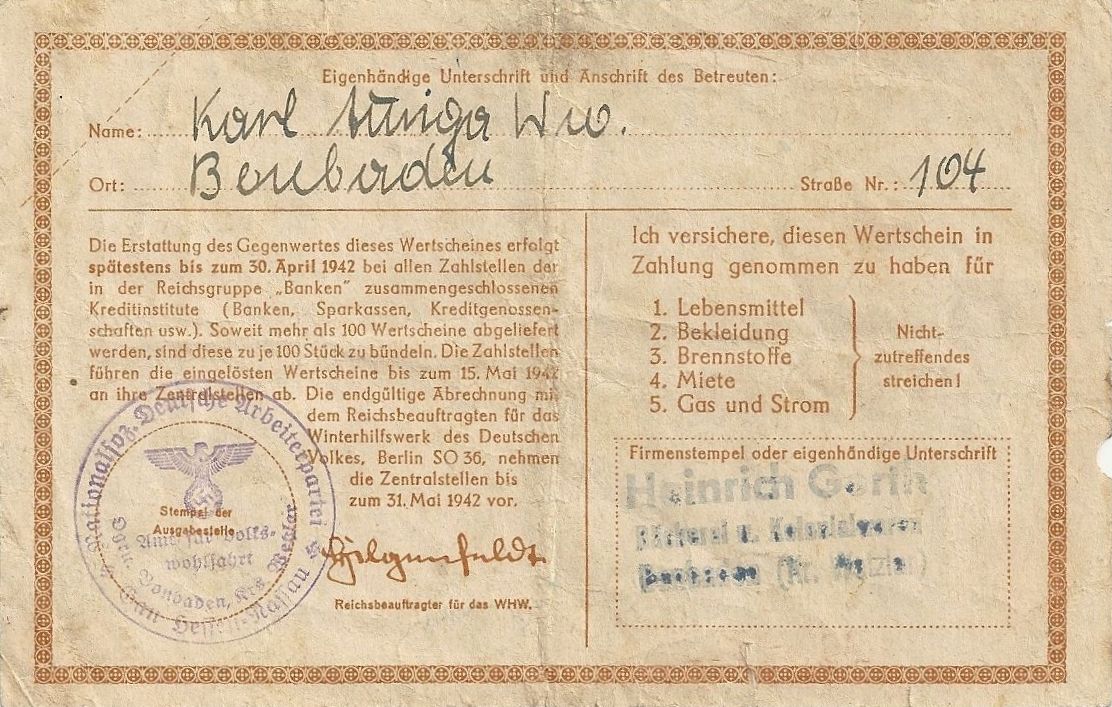 Eigenhändige Unterschrift und Anschrift des Betreuten:
Name: Karl Ww.
Ort: Bonbaden Straße Nr.: 104
Die Erstattung des Gegenwertes dieses Wertscheines erfolgt
spätestens bis zum 30. April 1942 bei allen Zahlstellen der
in der Reichsgruppe „Banken" zusammengeschlossenen
Kreditinstitute (Banken, Sparkassen, Kreditgenossen-
schaften usw.). Soweit mehr als 100 Wertscheine abgeliefert
werden, sind diese zu je 100 Stück zu bündeln. Die Zahlstellen
führen die eingelösten Wertscheine bis zum 15. Mai 1942
an ihre Zentralstellen ab. Die endgültige Abrechnung mit
dem Reichsbeauftragten für das
Winterhilfswerk des Deutschen
Volkes, Berlin SO 36, nehmen
die Zentralstellen bis
zum 31. Mai 1942 vor.
Stempel der
Ausgabestelle
Nationalsoz. Deutsche Arbeiterpartei
Gau Hessen-Nassau
Amt für Volks-
wohlfahrt
Bonbaden, Krs. Wetzlar
Hilgenfeldt
Reichsbeauftragter für das WHW.
Ich versichere, diesen Wertschein in
Zahlung genommen zu haben für
1. Lebensmittel
2. Bekleidung
3. Brennstoffe
4. Miete
5. Gas und Strom
Nicht-
zutreffendes
streichen!
Firmenstempel oder eigenhändige Unterschrift
Heinrich
Bäckerei u. Kolonialwaren
(Kr. Wetzlar)